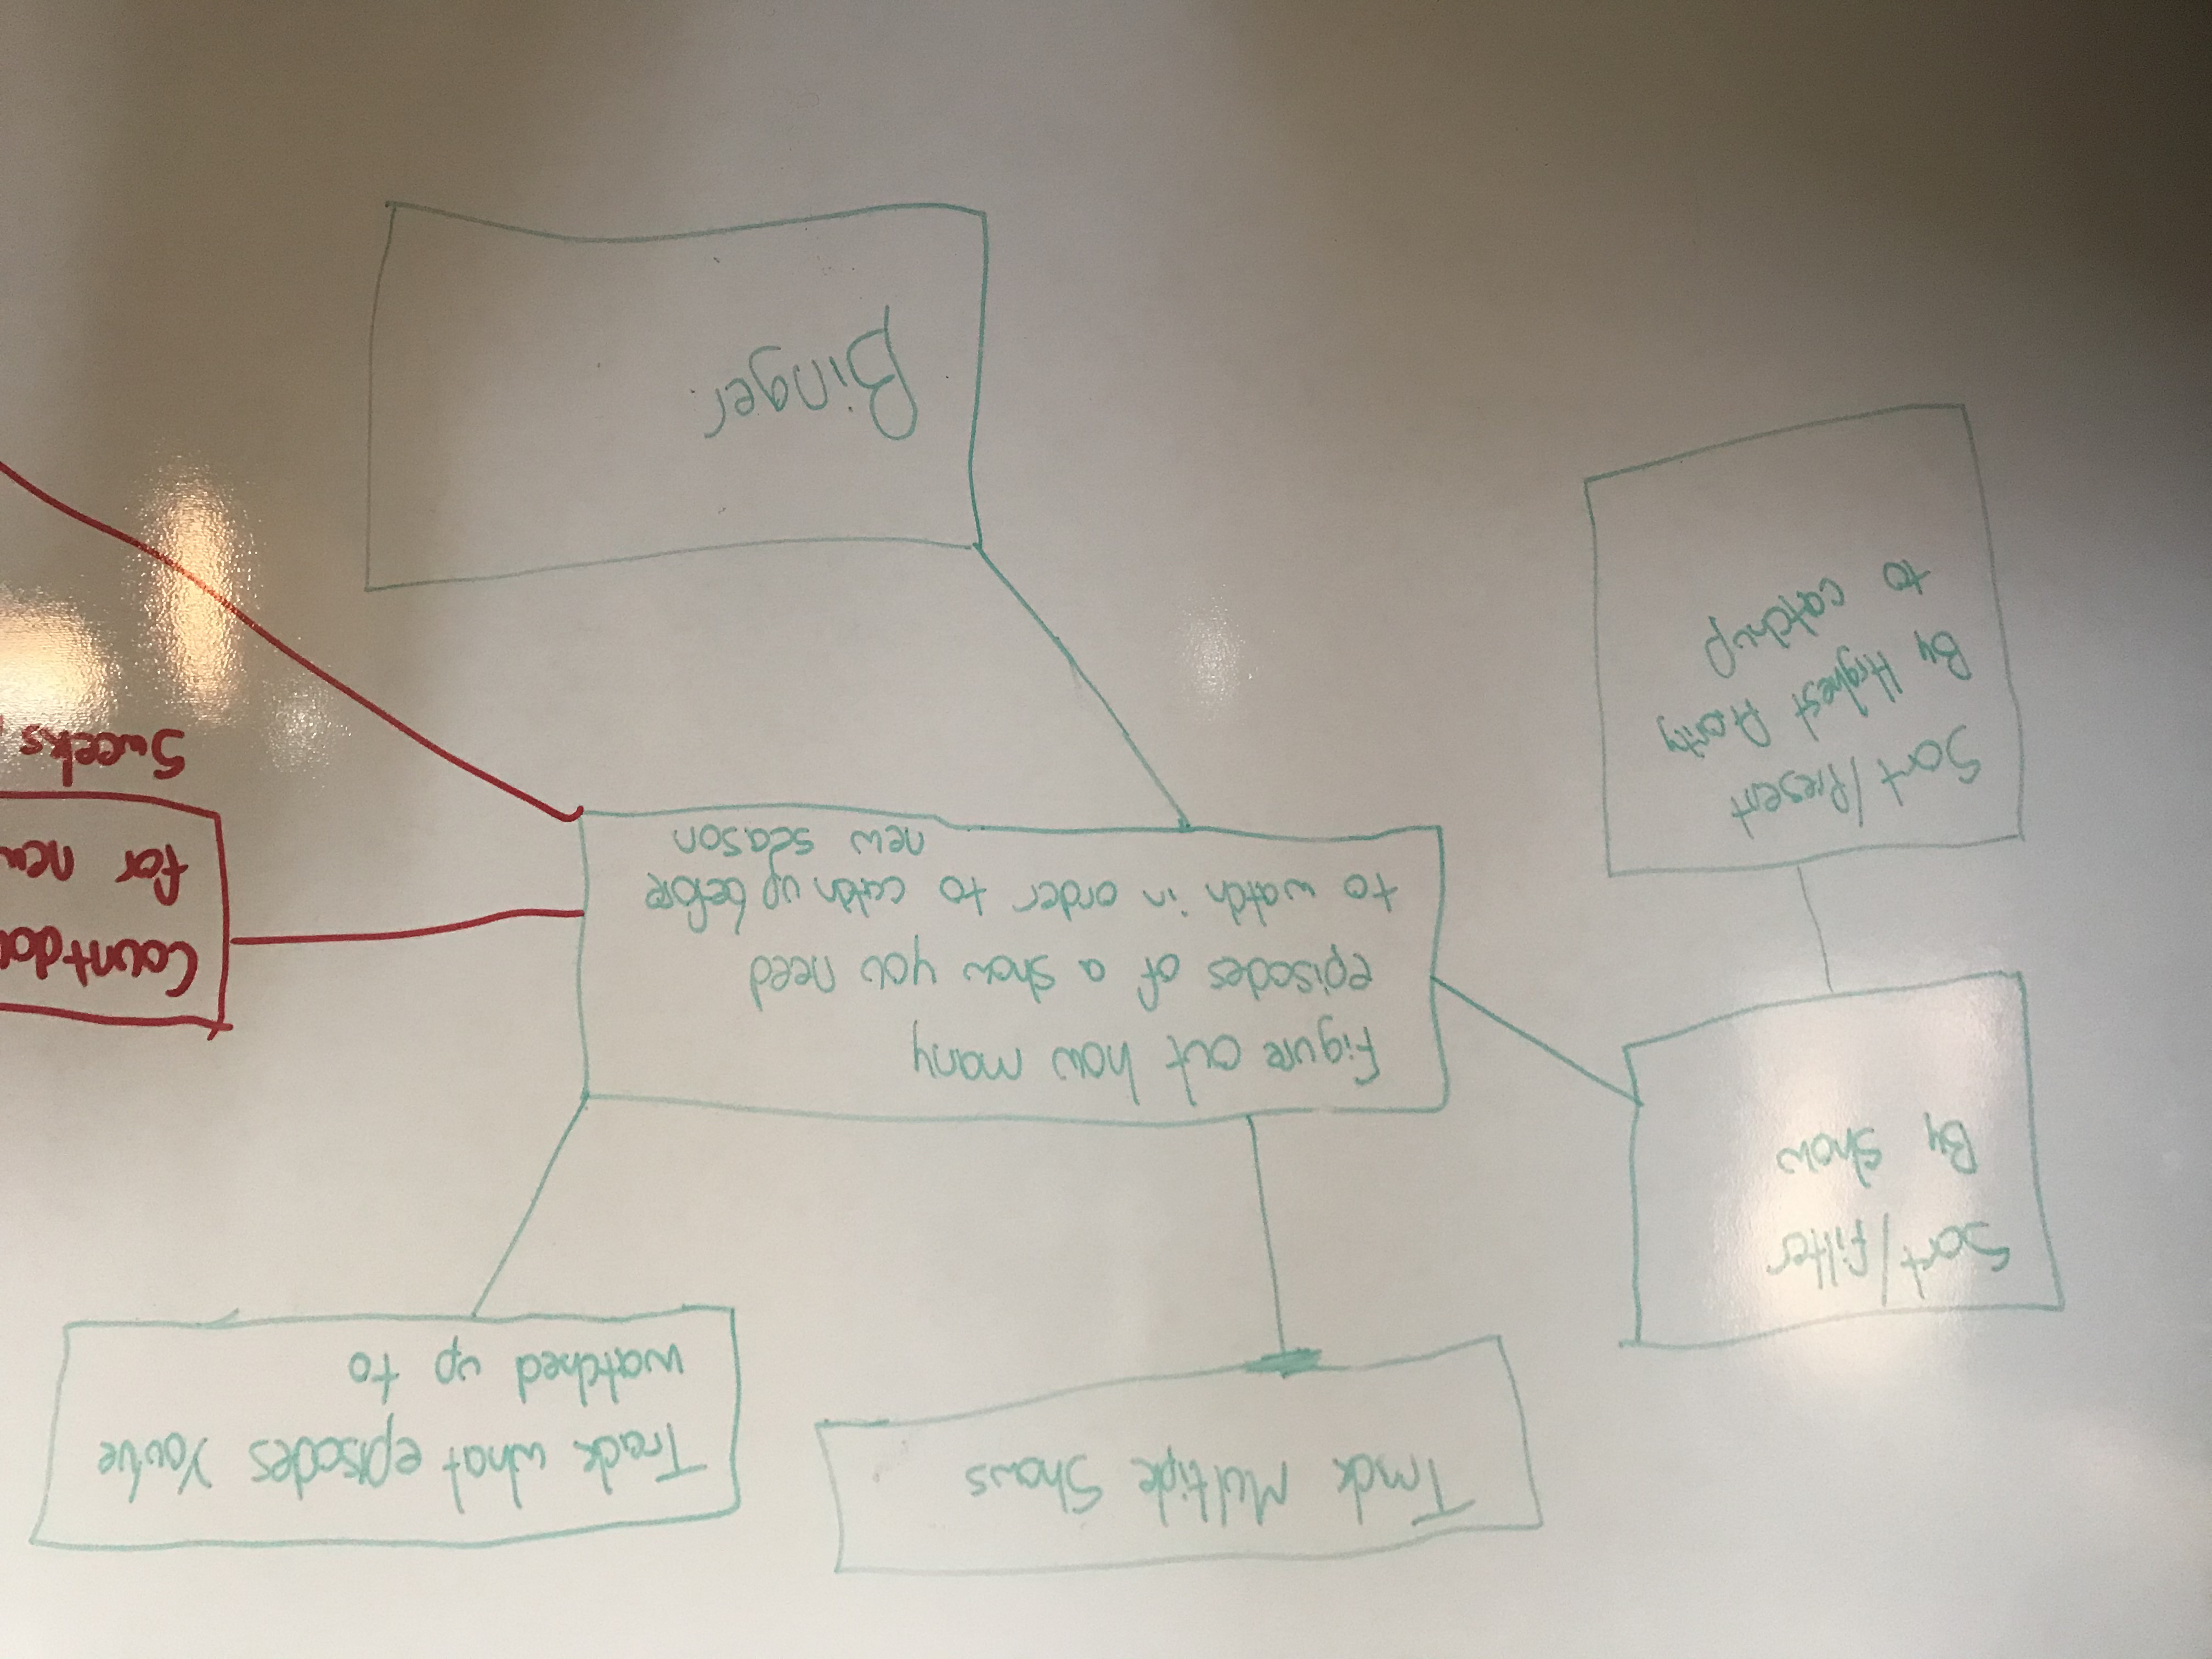 Track Multiple Shows
Track what episodes You've
watched up to
Sort/filter
By show
Figure out how many
episodes of a show you need
to watch in order to catch up before
new season
Countdou
for new
5weeks
Sort/Present
By Highest Priority
to catchup
Binger.